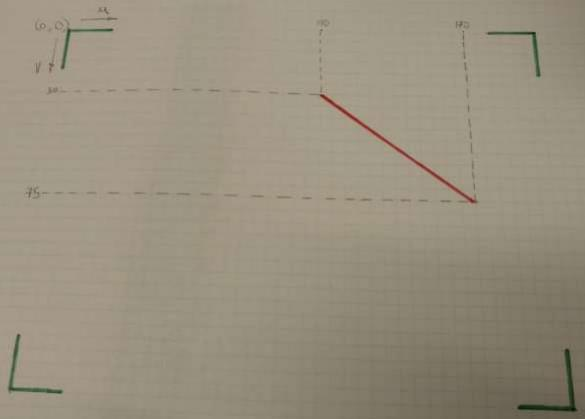 (0,0)
u
110
170
v
30
75